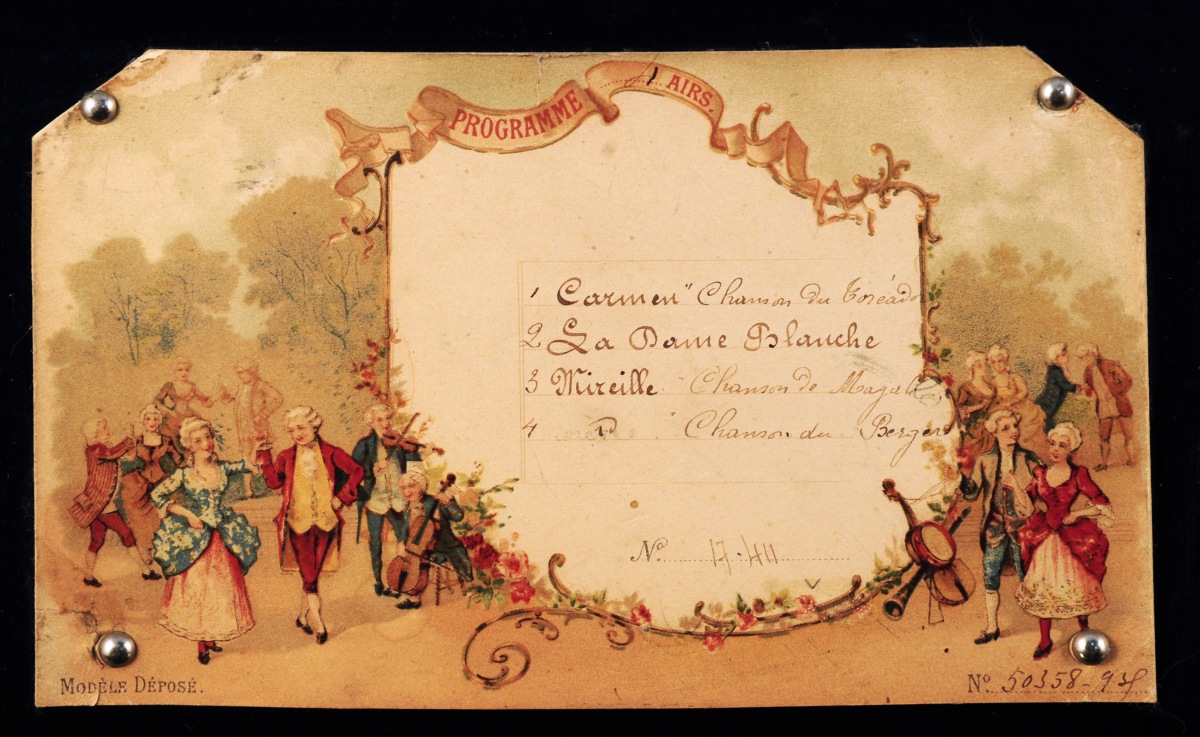 PROGRAMME
AIRS.
1 Carmen" Chanson du Toréador
2 La Dame Blanche
3 Mireille Chanson de Magali
4 " Chanson du Berger
No 17.411
MODÈLE DÉPOSÉ.
No 50358-